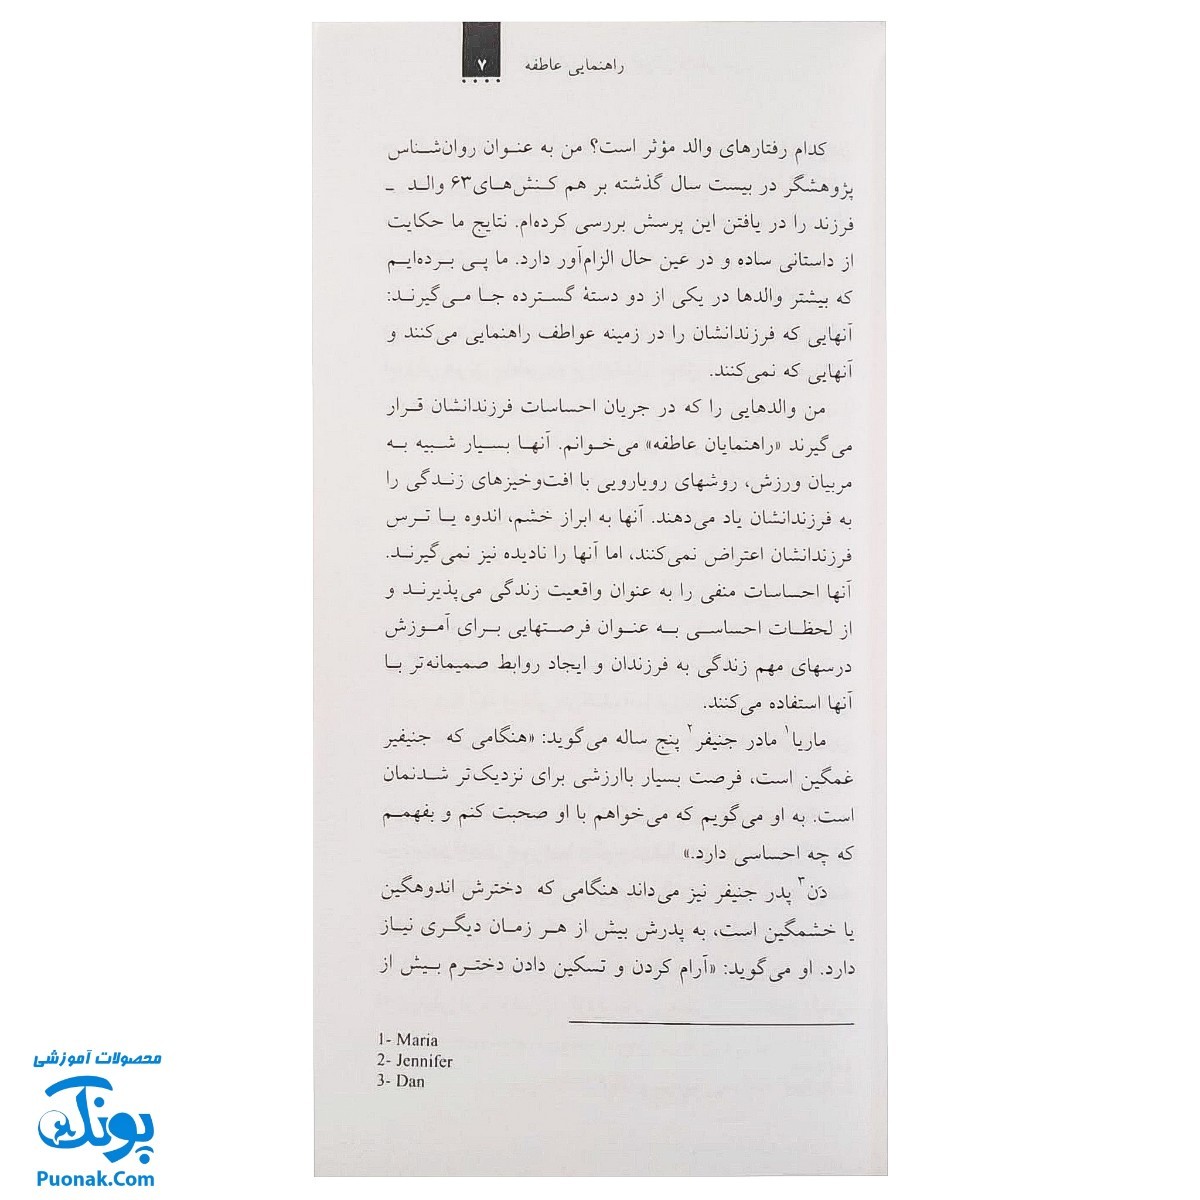 راهنمایی عاطفه ۷
کدام رفتارهای والد مؤثر است؟ من به عنوان روان‌شناس
پژوهشگر در بیست سال گذشته بر هم کنش‌های ۶۳ والد ـ
فرزند را در یافتن این پرسش بررسی کرده‌ام. نتایج ما حکایت
از داستانی ساده و در عین حال الزام‌آور دارد. ما پی برده‌ایم
که بیشتر والدها در یکی از دو دستهٔ گسترده جا می‌گیرند:
آنهایی که فرزندانشان را در زمینه عواطف راهنمایی می‌کنند و
آنهایی که نمی‌کنند.
من والدهایی را که در جریان احساسات فرزندانشان قرار
می‌گیرند «راهنمایان عاطفه» می‌خوانم. آنها بسیار شبیه به
مربیان ورزش، روشهای رویارویی با افت‌وخیزهای زندگی را
به فرزندانشان یاد می‌دهند. آنها به ابراز خشم، اندوه یا ترس
فرزندانشان اعتراض نمی‌کنند، اما آنها را نادیده نیز نمی‌گیرند.
آنها احساسات منفی را به عنوان واقعیت زندگی می‌پذیرند و
از لحظات احساسی به عنوان فرصتهایی برای آموزش
درسهای مهم زندگی به فرزندان و ایجاد روابط صمیمانه‌تر با
آنها استفاده می‌کنند.
ماریا۱ مادر جنیفر۲ پنج ساله می‌گوید: «هنگامی که جنیفیر
غمگین است، فرصت بسیار باارزشی برای نزدیک‌تر شدنمان
است. به او می‌گویم که می‌خواهم با او صحبت کنم و بفهمم
که چه احساسی دارد.»
دَن۳ پدر جنیفر نیز می‌داند هنگامی که دخترش اندوهگین
یا خشمگین است، به پدرش بیش از هر زمان دیگری نیاز
دارد. او می‌گوید: «آرام کردن و تسکین دادن دخترم بیش از
1- Maria
2- Jennifer
3- Dan
محصولات آموزشی
پونک
Puonak.Com